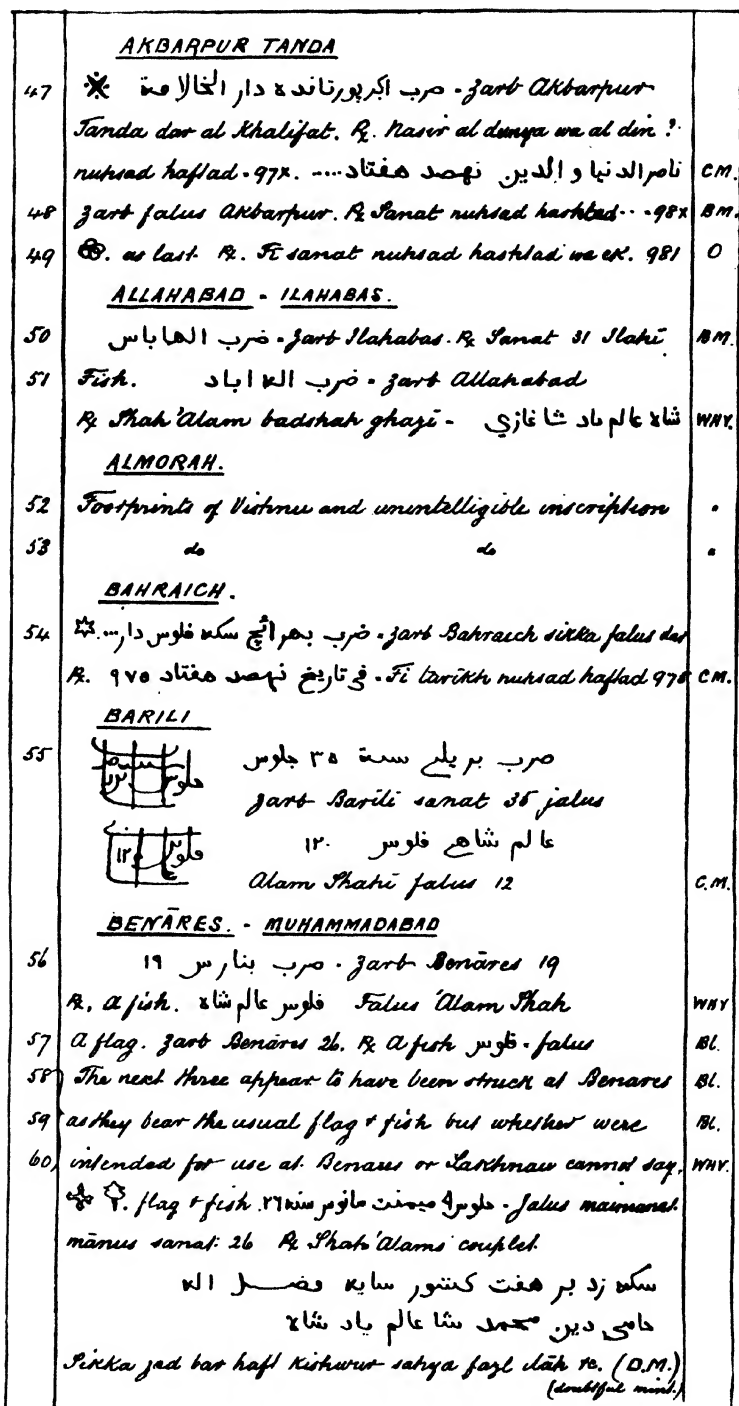 AKBARPUR TANDA
47 ضرب اكبرپورتانده دار الخالافة - Zarb Akbarpur
Tanda dar al Khalifat. Rx. Nasir al dunya wa al din ?
nuhsad haftad . 97x. .... ناصر الدنيا و الدين نهصد هفتاد CM.
48 Zarb falus Akbarpur. Rx Sanat nuhsad hashtad ... 98x BM.
49 as last. Rx. Fi sanat nuhsad hashtad wa ek. 981 O
ALLAHABAD - ILAHABAS.
50 ضرب الهاباس - Zarb Ilahabas. Rx Sanat 31 Ilahi BM.
51 Fish. ضرب اله اباد - Zarb Allahabad
Rx Shah 'Alam badshah ghazi - شاه عالم باد شا غازي WHY.
ALMORAH.
52 Footprints of Vishnu and unintelligible inscription "
53 do do "
BAHRAICH.
54 ضرب بهرائچ سكه فلوس دار... - Zarb Bahraich sikka falus dar
Rx. في تاريخ نهصد هفتاد ٩٧٥ - Fi tarikh nuhsad haftad 975 CM.
BARILI
55 ضرب بريلي سنة ٣٥ جلوس
Zarb Barili sanat 35 jalus
عالم شاهي فلوس ١٢
Alam Shahi falus 12 C.M.
BENĀRES. - MUHAMMADABAD
56 ضرب بنارس ١٩ - Zarb Benāres 19
Rx, A fish. فلوس عالم شاه Falus 'Alam Shah WHY
57 A flag. Zarb Benāres 26. Rx A fish فلوس - falus Bl.
58 The next three appear to have been struck at Benares Bl.
59 as they bear the usual flag + fish but whether were Bl.
60 intended for use at Benares or Lakhnaw cannot say. WHY.
flag + fish. جلوس ميمنت مانوس سنه ٢٦ - Jalus maimanat
mānus sanat. 26 Rx Shah 'Alams couplet.
سكه زد بر هفت كشور سايه فضل اله
حامى دين محمد شا عالم باد شاه
Sikka zad bar haft kishwur sahya fazl ilāh &c. (D.M.)
(doubtful mint.)